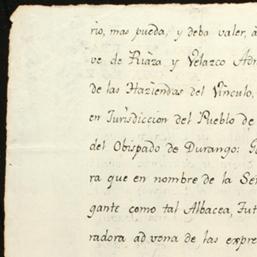 rio, mas pueda, y deba valer, à
ve de Riàza y Velazco Adm
de las Haziendas del Vinculo,
en Jurisdiccion del Pueblo de
del Obispado de Durango: Ga
ra que en nombre de la Señ
gante como tal Albacea, Tut
radora ad vona de las expre